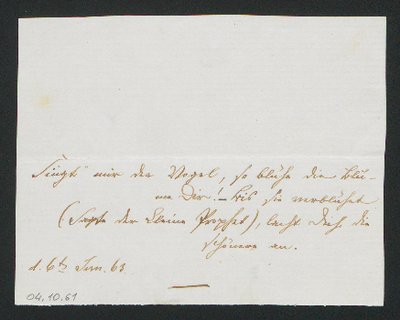 Singt mir der Vogel, so blühe die Blu-
me Dir! – Bis sie verblühet
(Sagte der kleine Prophet), lacht Dich die
schönere an.
d. 6t Jan. 61
04.10.61